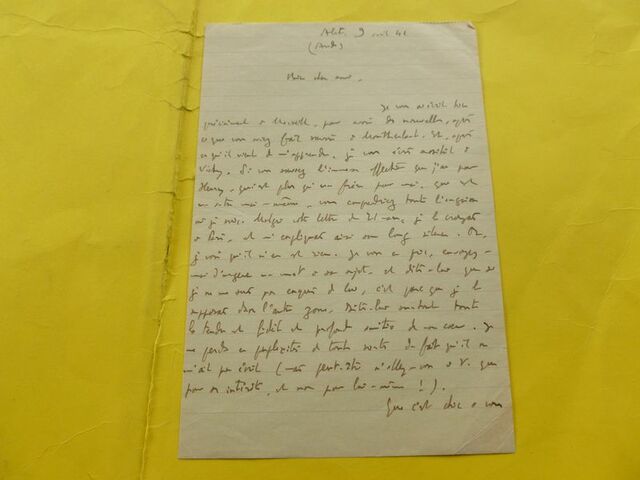 Alet, 9 avril 41
(Aude)
Mon cher ami,
Je vous écrivis
à Marseille, pour avoir des nouvelles, après
ce que vous avez fait savoir à Montherlant. Et, après
ce qu'il vient de m'apprendre, je vous écris aussitôt à
Vichy. Si vous savez l'immense affection que j'ai pour
Henry, qui est plus qu'un frère pour moi, que est
un autre moi-même, vous comprendrez toute l'angoisse
où je suis. Malgré cette lettre de je le croyais
à Paris, et m'expliquais ainsi son long silence. Or,
je vois qu'il n'en est rien. Je vous en prie, envoyez-
moi d'urgence un mot à son sujet, et dites-lui que si
je ne me suis pas enquis de lui, c'est parce que je le
supposais dans l'autre zone. Dites-lui surtout toute
la tendre et fidèle et profonde amitié de mon cœur. Je
me perds en perplexités de toute sorte du fait qu'il ne
m'ait pas écrit (mais peut-être n'allez-vous à V. que
pour vos intérêts, et non pour lui-même !).
Que c'est chic à vous